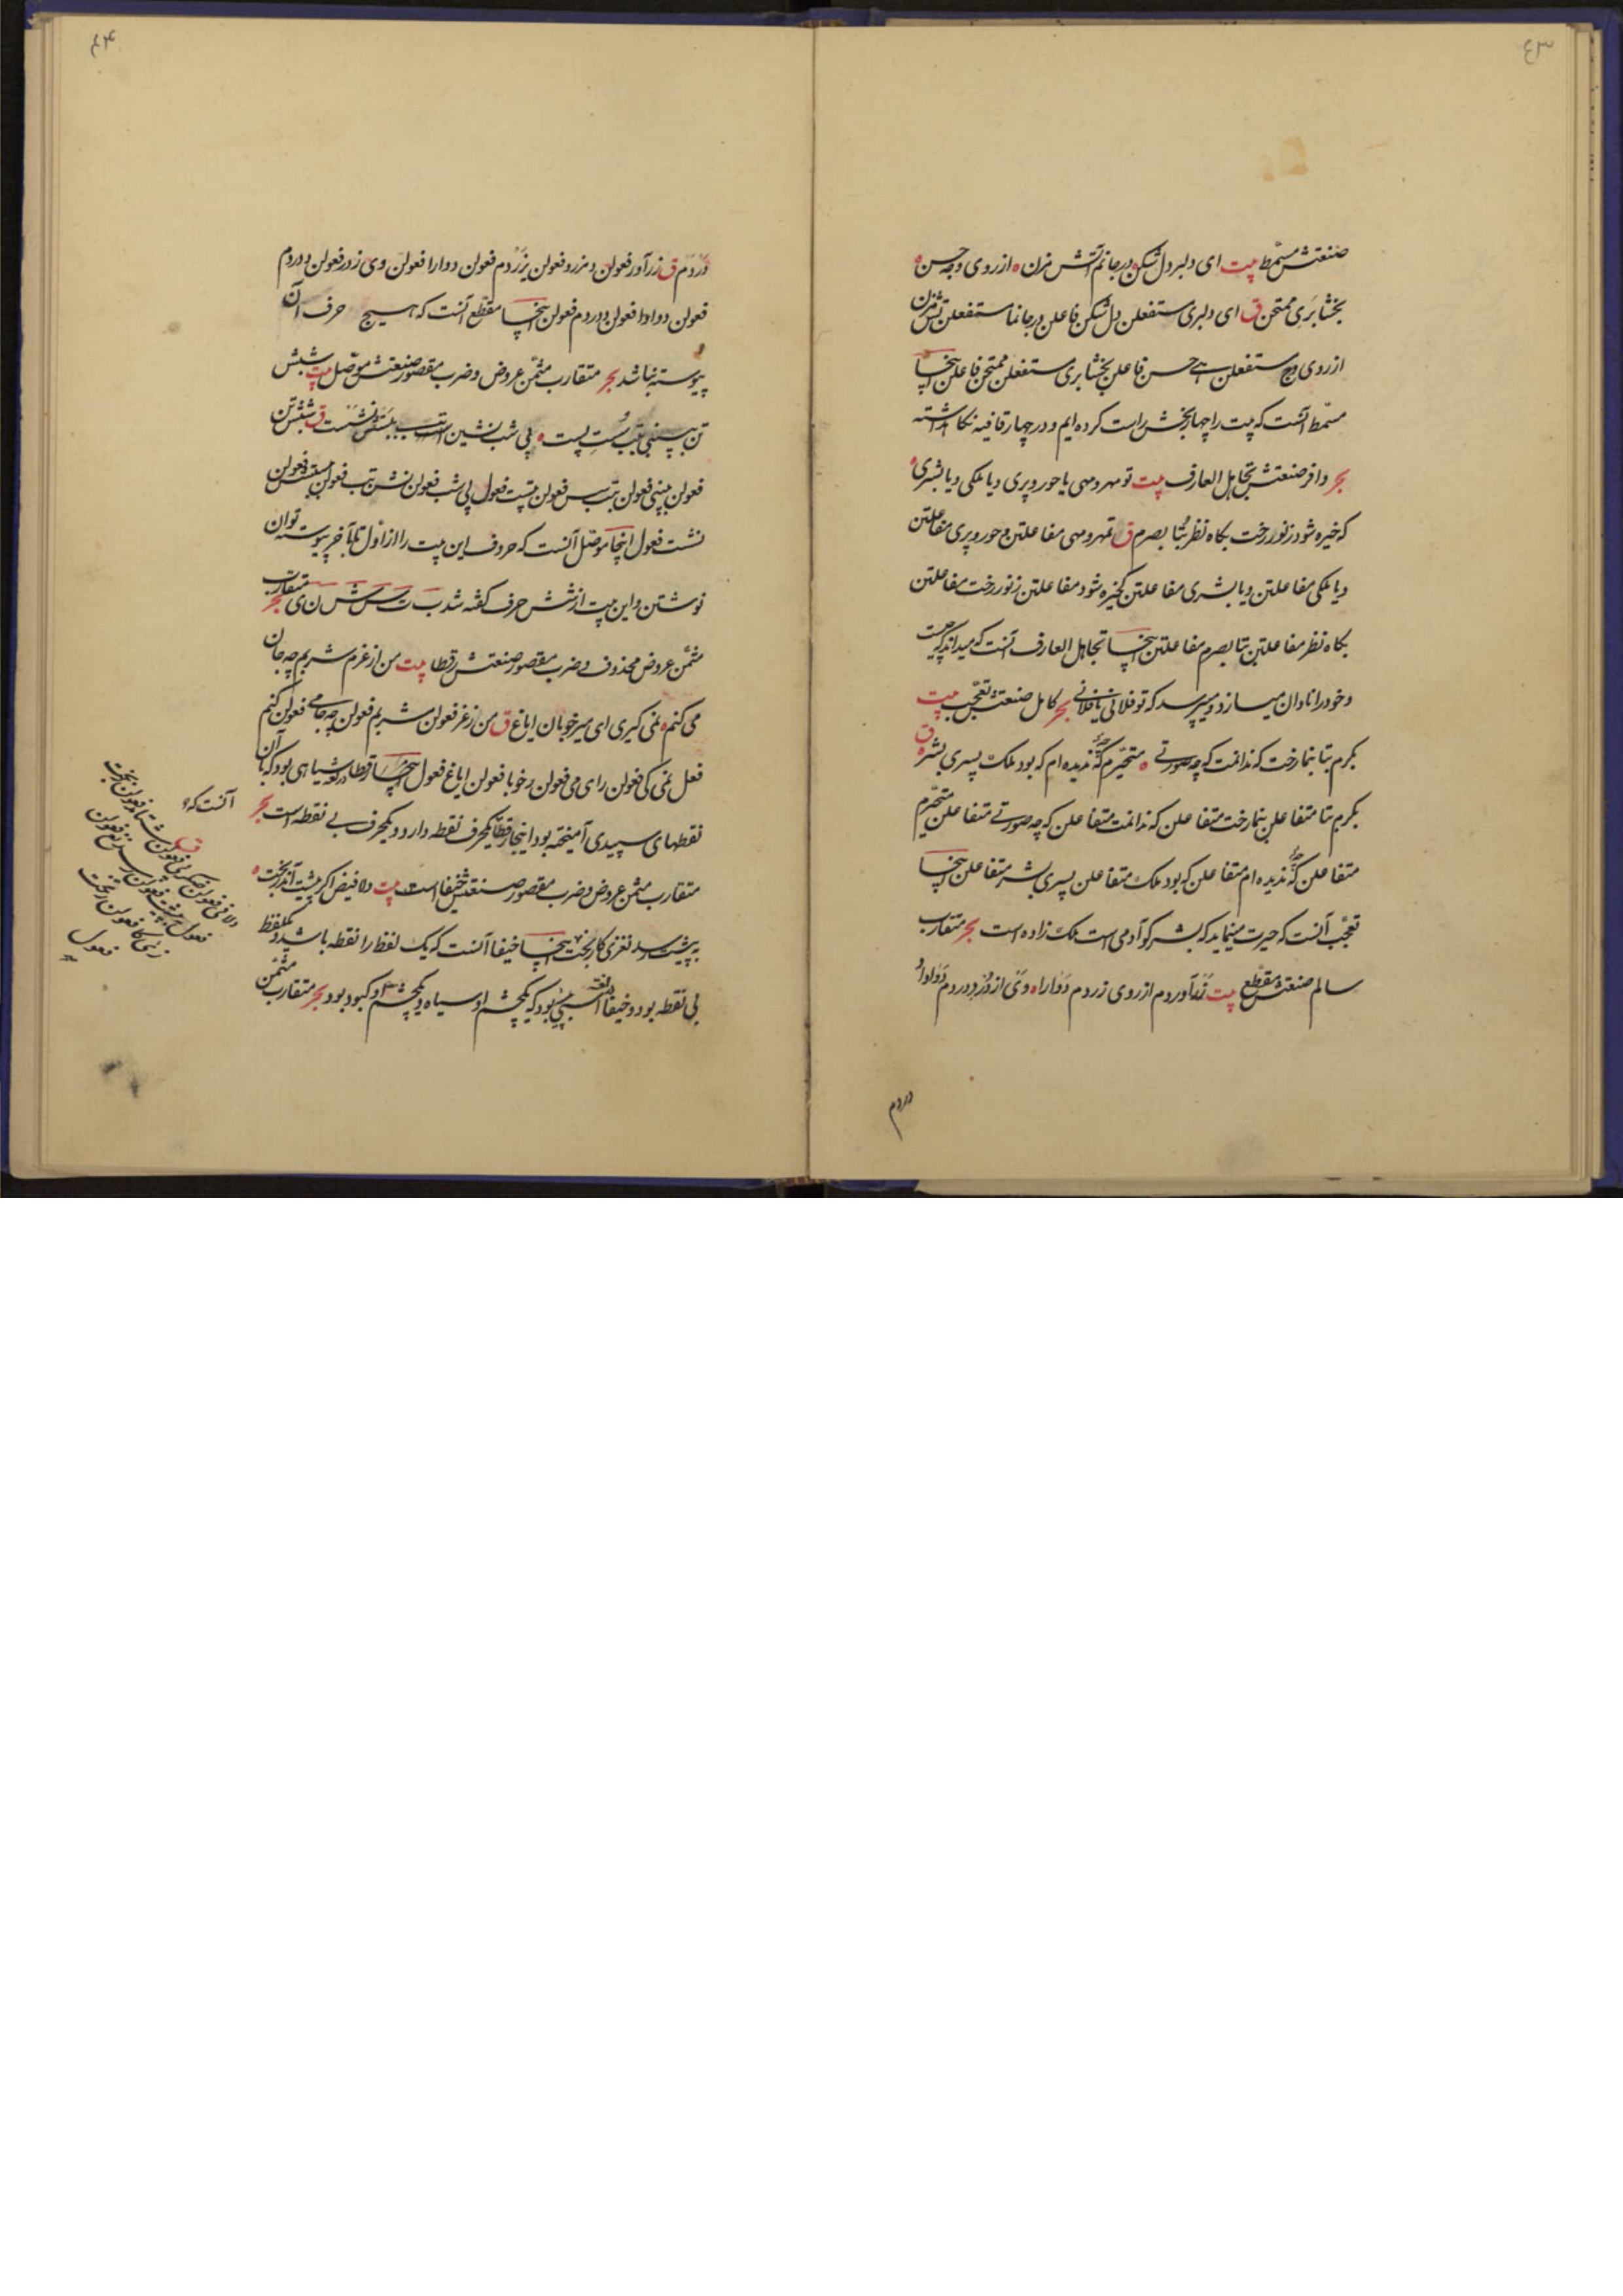 ۴۳
صنعتش مسمّط بیت ای دلبر دل شکن در جانم آتش مزن ه از روی وجه حسن ه
بخشا بری ممتحن ق ای دلبری مستفعلن دل شکن فاعلن در جانما مستفعلن تش مزن
از روی وج مستفعلن هے حسن فاعلن بخشا بری مستفعلن ممتحن فاعلن اینجا
مسمّط آنست که بیت را چهار بخش راست کرده ایم و در چهار قافیه نکاه داشته
بحر وافر صنعتش تجاهل العارف بیت تو مهر و مهی یا حور و پری و یا ملکی و یا بشری ه
که خیره شود ز نور رخت بکاه نظر بتا بصرم ق تمهر و مهی مفاعلتن و حور و پری مفاعلتن
و یا ملکی مفاعلتن و یا بشری مفاعلتن کخیره شود مفاعلتن ز نور رخت مفاعلتن
بکاه نظر مفاعلتن بتا بصرم مفاعلتن اینجا تجاهل العارف آنست که میداند که کیست
و خود را نادان میسازد و میپرسد که تو فلانی یا فلانی بحر کامل صنعتش تعجّب بیت
بکرم بتا بنما رخت که ندانمت که چه صورتے ه متحیّرم که ندیده ام که بود ملک پسری بشر ه ق
بکرم بتا متفاعلن بنما رخت متفاعلن که ندانمت متفاعلن که چه صورتے متفاعلن متحیّرم
متفاعلن که ندیده ام متفاعلن که بود ملک متفاعلن پسری بشر متفاعلن اینجا
تعجّب آنست که حیرت مینماید که بشر کو آدمی است ملک زاده است بحر متقارب
سالم صنعتش مقطّع بیت زر آوردم از روی زردم دوارا ه وی از دور دردم دوا وا
در دم
۴۴
دردم ق زر آور فعولن دمز رو فعولن یزردم فعولن دوارا فعولن وی ز در فعولن دردم
فعولن دوا وا فعولن دردم فعولن اینجا مقطّع آنست که هیچ حرف آن
پیوسته نباشد بحر متقارب مثمّن عروض و ضرب مقصور صنعتش موصّل بیت شبش
فعولن ببینی فعولن فعولن فعول پی شب فعولن فعولن فعولن
نشت فعول اینجا موصّل آنست که حروف این بیت را از اوّل تا بآخر پیوسته توان
نوشتن و این بیت از شش حرف کفته شد ب ت س ش ن ی بحر متقارب
مثمّن عروض محذوف و ضرب مقصور صنعتش رقطا بیت من از غرم شربم چه جان
می کنم ه نمی کیری ای میر خوبان ایاغ ق من ز غر فعولن م شربم فعولن چه جامے فعولن کنم
فعل نمی کی فعولن رای می فعولن ر خوبا فعولن ایاغ فعول اینجا رقطا در لغت سیاهی بود که با آن
نقطهای سپیدی آمیخته بود اینجا رقطا یکحرف نقطه دارد و یکحرف بے نقطه است بحر
متقارب مثمن عروض و ضرب مقصور صنعتش خیفا است بیت دلا فیض اکر
خیفا آنست که یک لفظ را نقطه باشد و یکلفظ
بی نقطه بود و خیفا در لغت اسپی بود که یکچشم او سیاه و یکچشم او کبود بود بحر متقارب مثمّن
آنست که
ق
فعول